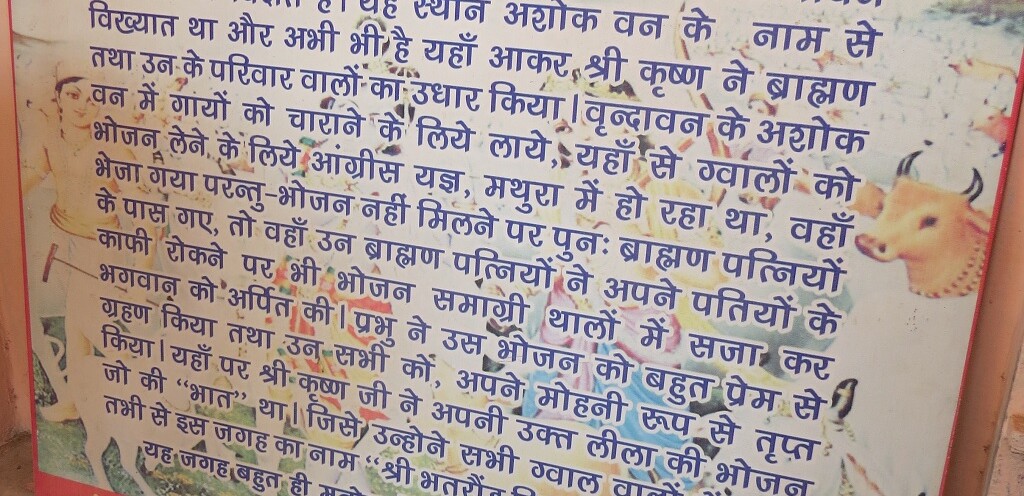 है। यह स्थान अशोक वन के नाम से
विख्यात था और अभी भी है यहाँ आकर श्री कृष्ण ने ब्राह्मण
तथा उन के परिवार वालों का उधार किया। वृन्दावन के अशोक
वन में गायों को चाराने के लिये लाये, यहाँ से ग्वालों को
भोजन लेने के लिये आंग्रीस यज्ञ, मथुरा में हो रहा था, वहाँ
भेजा गया परन्तु-भोजन नहीं मिलने पर पुनः ब्राह्मण पत्नियों
के पास गए, तो वहाँ उन ब्राह्मण पत्नियों ने अपने पतियों के
काफी रोकने पर भी भोजन समाग्री थालों में सजा कर
भगवान को अर्पित की। प्रभु ने उस भोजन को बहुत प्रेम से
ग्रहण किया तथा उन सभी को, अपने मोहनी रूप से तृप्त
किया। यहाँ पर श्री कृष्ण जी ने अपनी उक्त लीला की भोजन
जो की "भात" था। जिसे उन्होने सभी ग्वाल
तभी से इस जगह का नाम "श्री भतरौंड
यह जगह बहुत ही